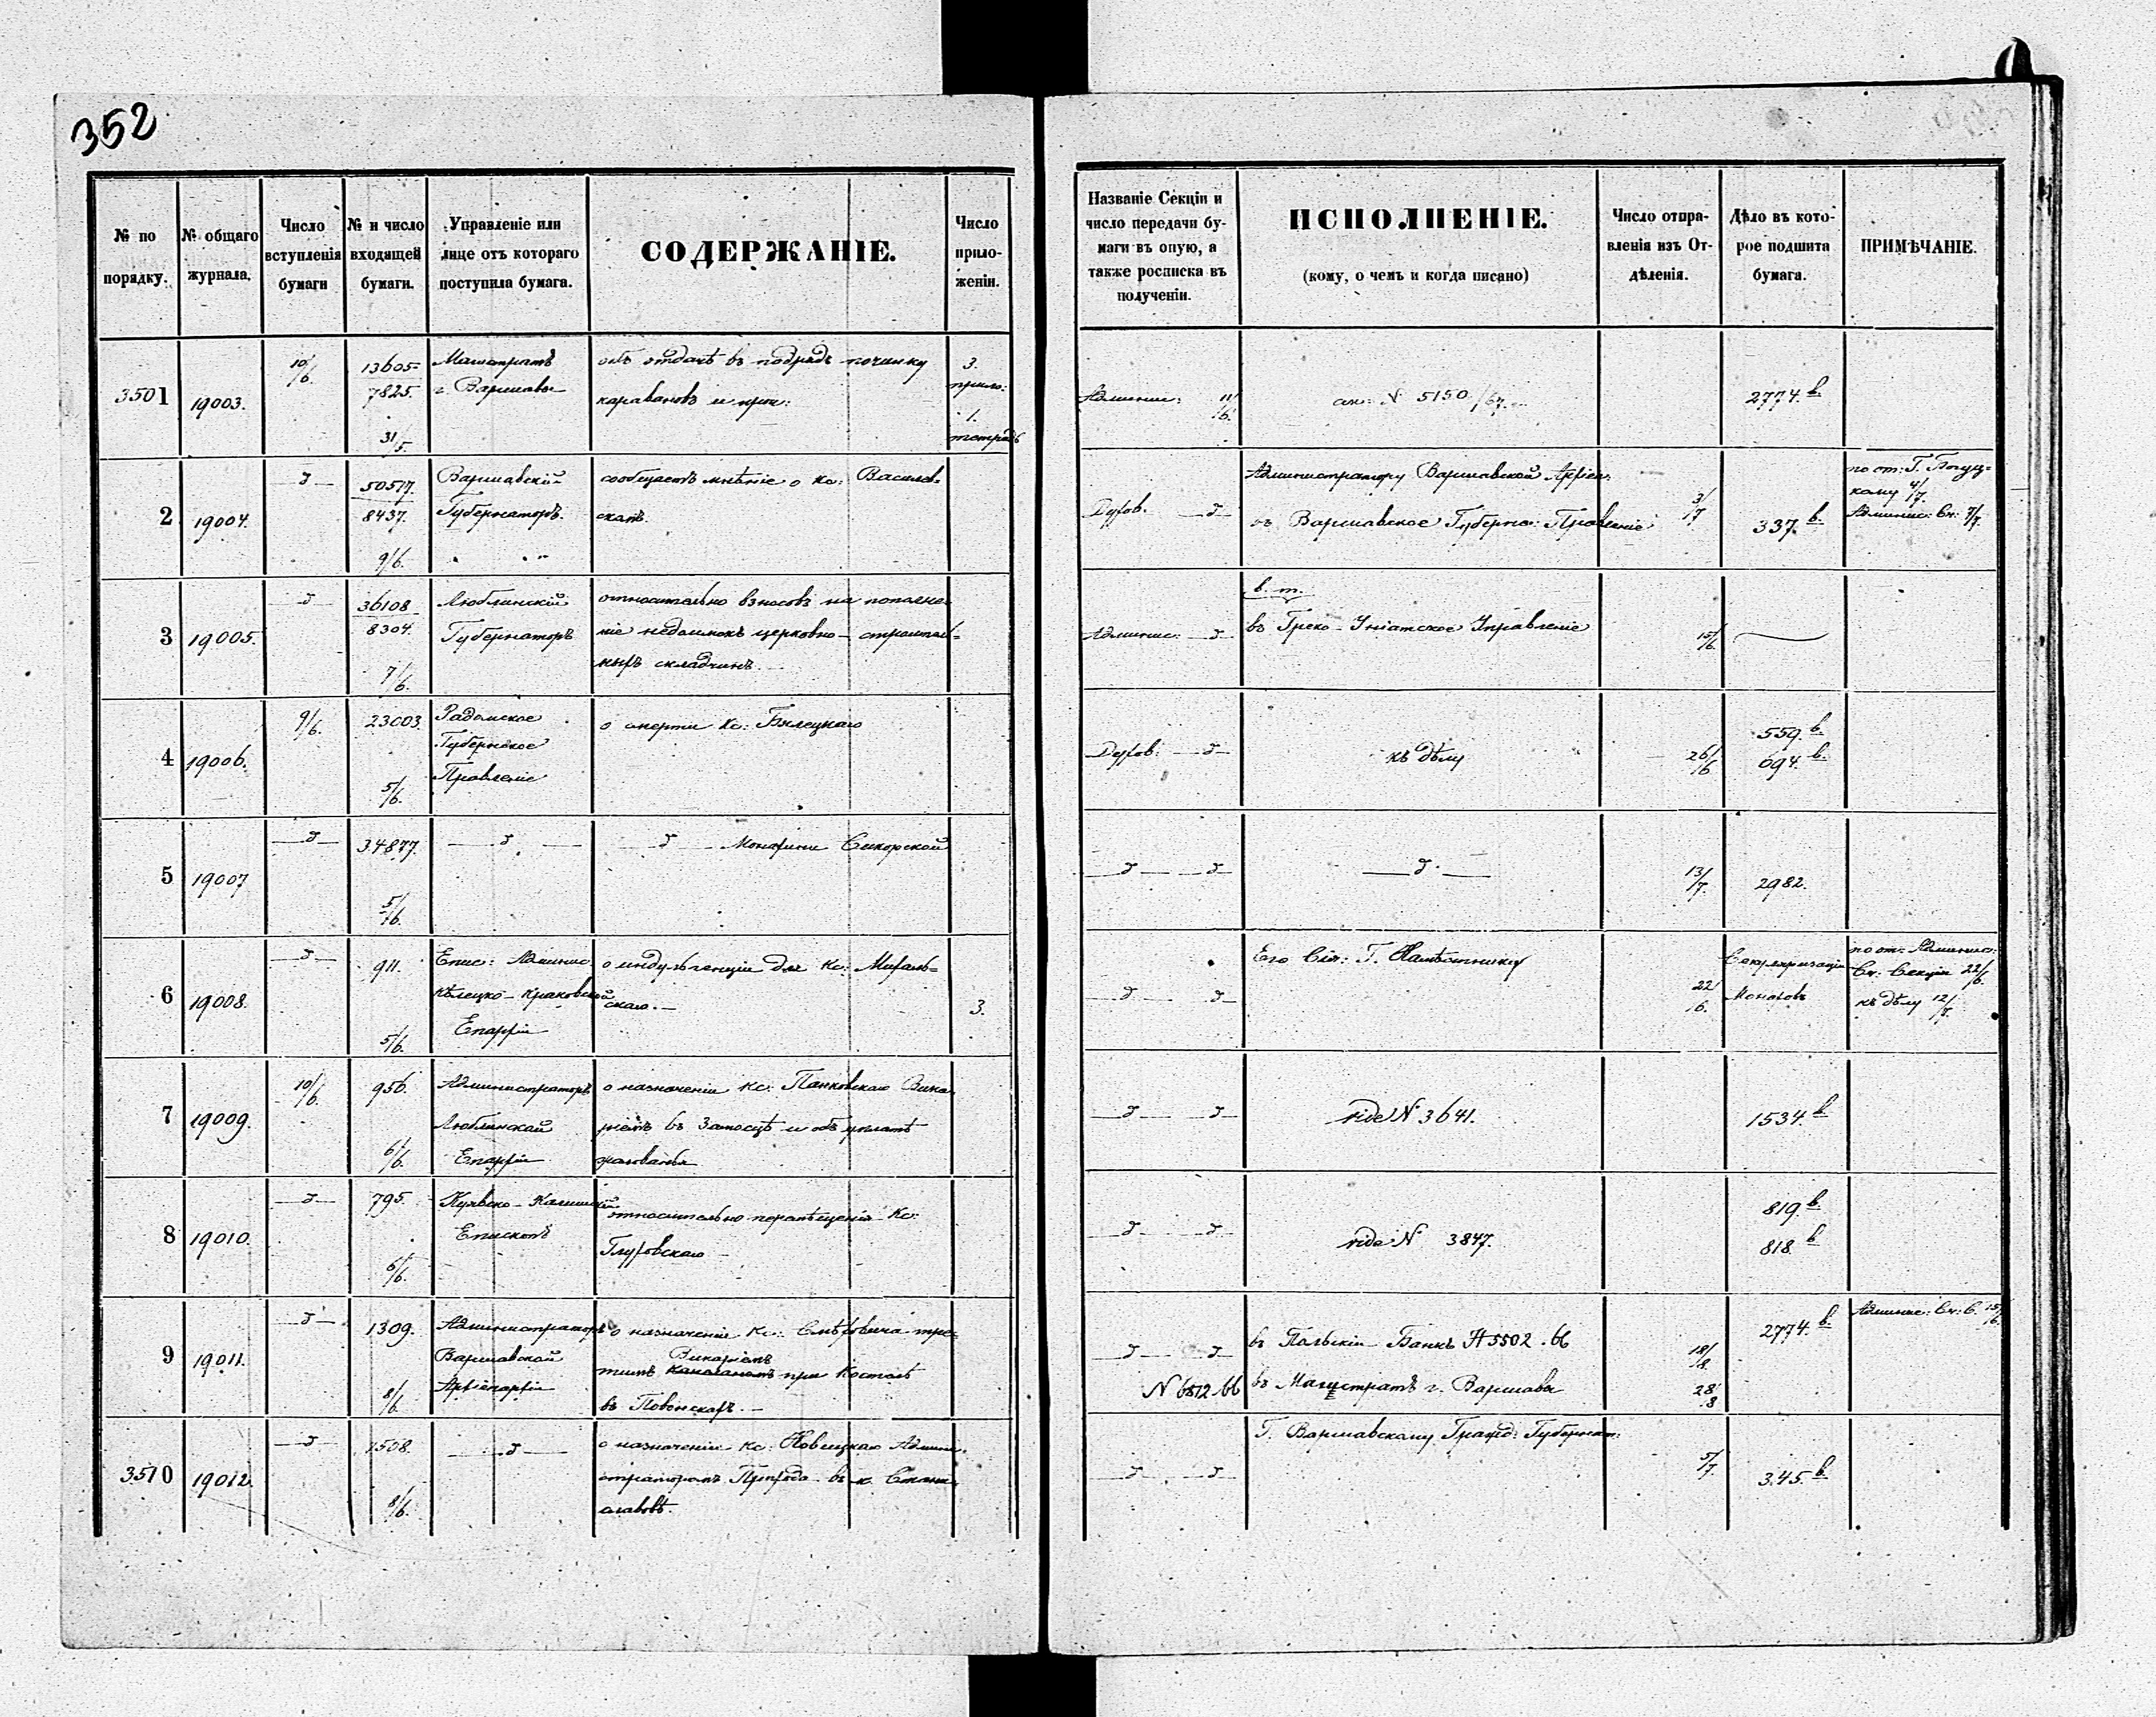 352
№ по порядку.
№ общаго журнала.
Число вступленія бумаги
№ и число входящей бумаги.
Управленіе или лице отъ котораго поступила бумага.
СОДЕРЖАНІЕ.
Число приложеніи.
Названіе Секціи и число передачи бумаги въ оную, а также росписка въ полученіи.
ИСПОЛНЕНІЕ.
(кому, о чемъ и когда писано)
Число отправленія изъ Отдѣленія.
Дѣло въ которое подшита бумага.
ПРИМѢЧАНІЕ.
3501
19003.
10/6.
13605
7825.
31/5.
Магистратъ
г. Варшавы
объ отдачѣ въ подрядъ починку
каравановъ и проч:
3.
прило:
1.
тетрадь
Админис: 11/6.
№ 5150/67.
2774.в.
2
19004.
50517.
8437.
9/6.
Варшавскій
Губернаторъ.
сообщаетъ мнѣніе о Кс: Василев-
скомъ.
Духов.
Администратору Варшавской Архіеп:
въ Варшавское Губернс: Правленіе
3/7
337.в.
4/7.
Админис: Ск: 7/7.
3
19005.
36108
8304.
7/6.
Люблинскій
Губернаторъ
относительно взносовъ на пополне-
ніе недоимокъ церковно-строитель-
ныхъ складчинъ.
Админис:
в. т.
въ Греко-Уніатское Управленіе
15/6.
4
19006.
9/6.
23003.
5/6.
Радомское
Губернское
Правленіе
о смерти Кс: Билецкаго
Духов:
къ дѣлу
26/6
559.в.
694.в.
5
19007
34877.
5/6.
Монахини Сикорской
13/7.
2982.
6
19008.
911.
5/6.
Епис: Админис:
Кѣлецко-Краковской
Епархіи
о индульгенціи для Кс: Михаль-
скаго.
3.
Его Сія: Г. Намѣстнику
22/6.
Секуляризаціи
Монаховъ
по от: Админис:
Ск: Секціи 22/6.
къ дѣлу 12/7.
7
19009.
10/6.
956.
6/6.
Администраторъ
Люблинской
Епархіи
о назначеніи Кс: Панковскаго Вика-
ріемъ въ Замосцѣ и объ уплатѣ
жалованья
vide № 3641.
1534.в
8
19010.
795.
6/6.
Куявско-Калишскій
Епископъ
относительно перемѣщенія Кс:
Глуховскаго
vide № 3847.
819.в
818.в
9
19011.
1309.
8/6.
Администраторъ
Варшавской
Архіепархіи
о назначеніи Кс: Смѣховича тре-
Викаріемъ
тимъ капеланомъ при Костелѣ
въ Повонскахъ.
№ 6812.66
въ Польскій Банкъ № 5502.66
въ Магистратъ г. Варшавы
18/8.
28/8
2774.в.
Админис: Ск: С. 15/6.
3510
19012.
1508.
8/6.
о назначеніи Кс: Новицкаго Админи-
страторомъ Прихода въ к. Стани-
славовѣ.
Г. Варшавскому Гражд: Губернат:
5/7.
345.в.